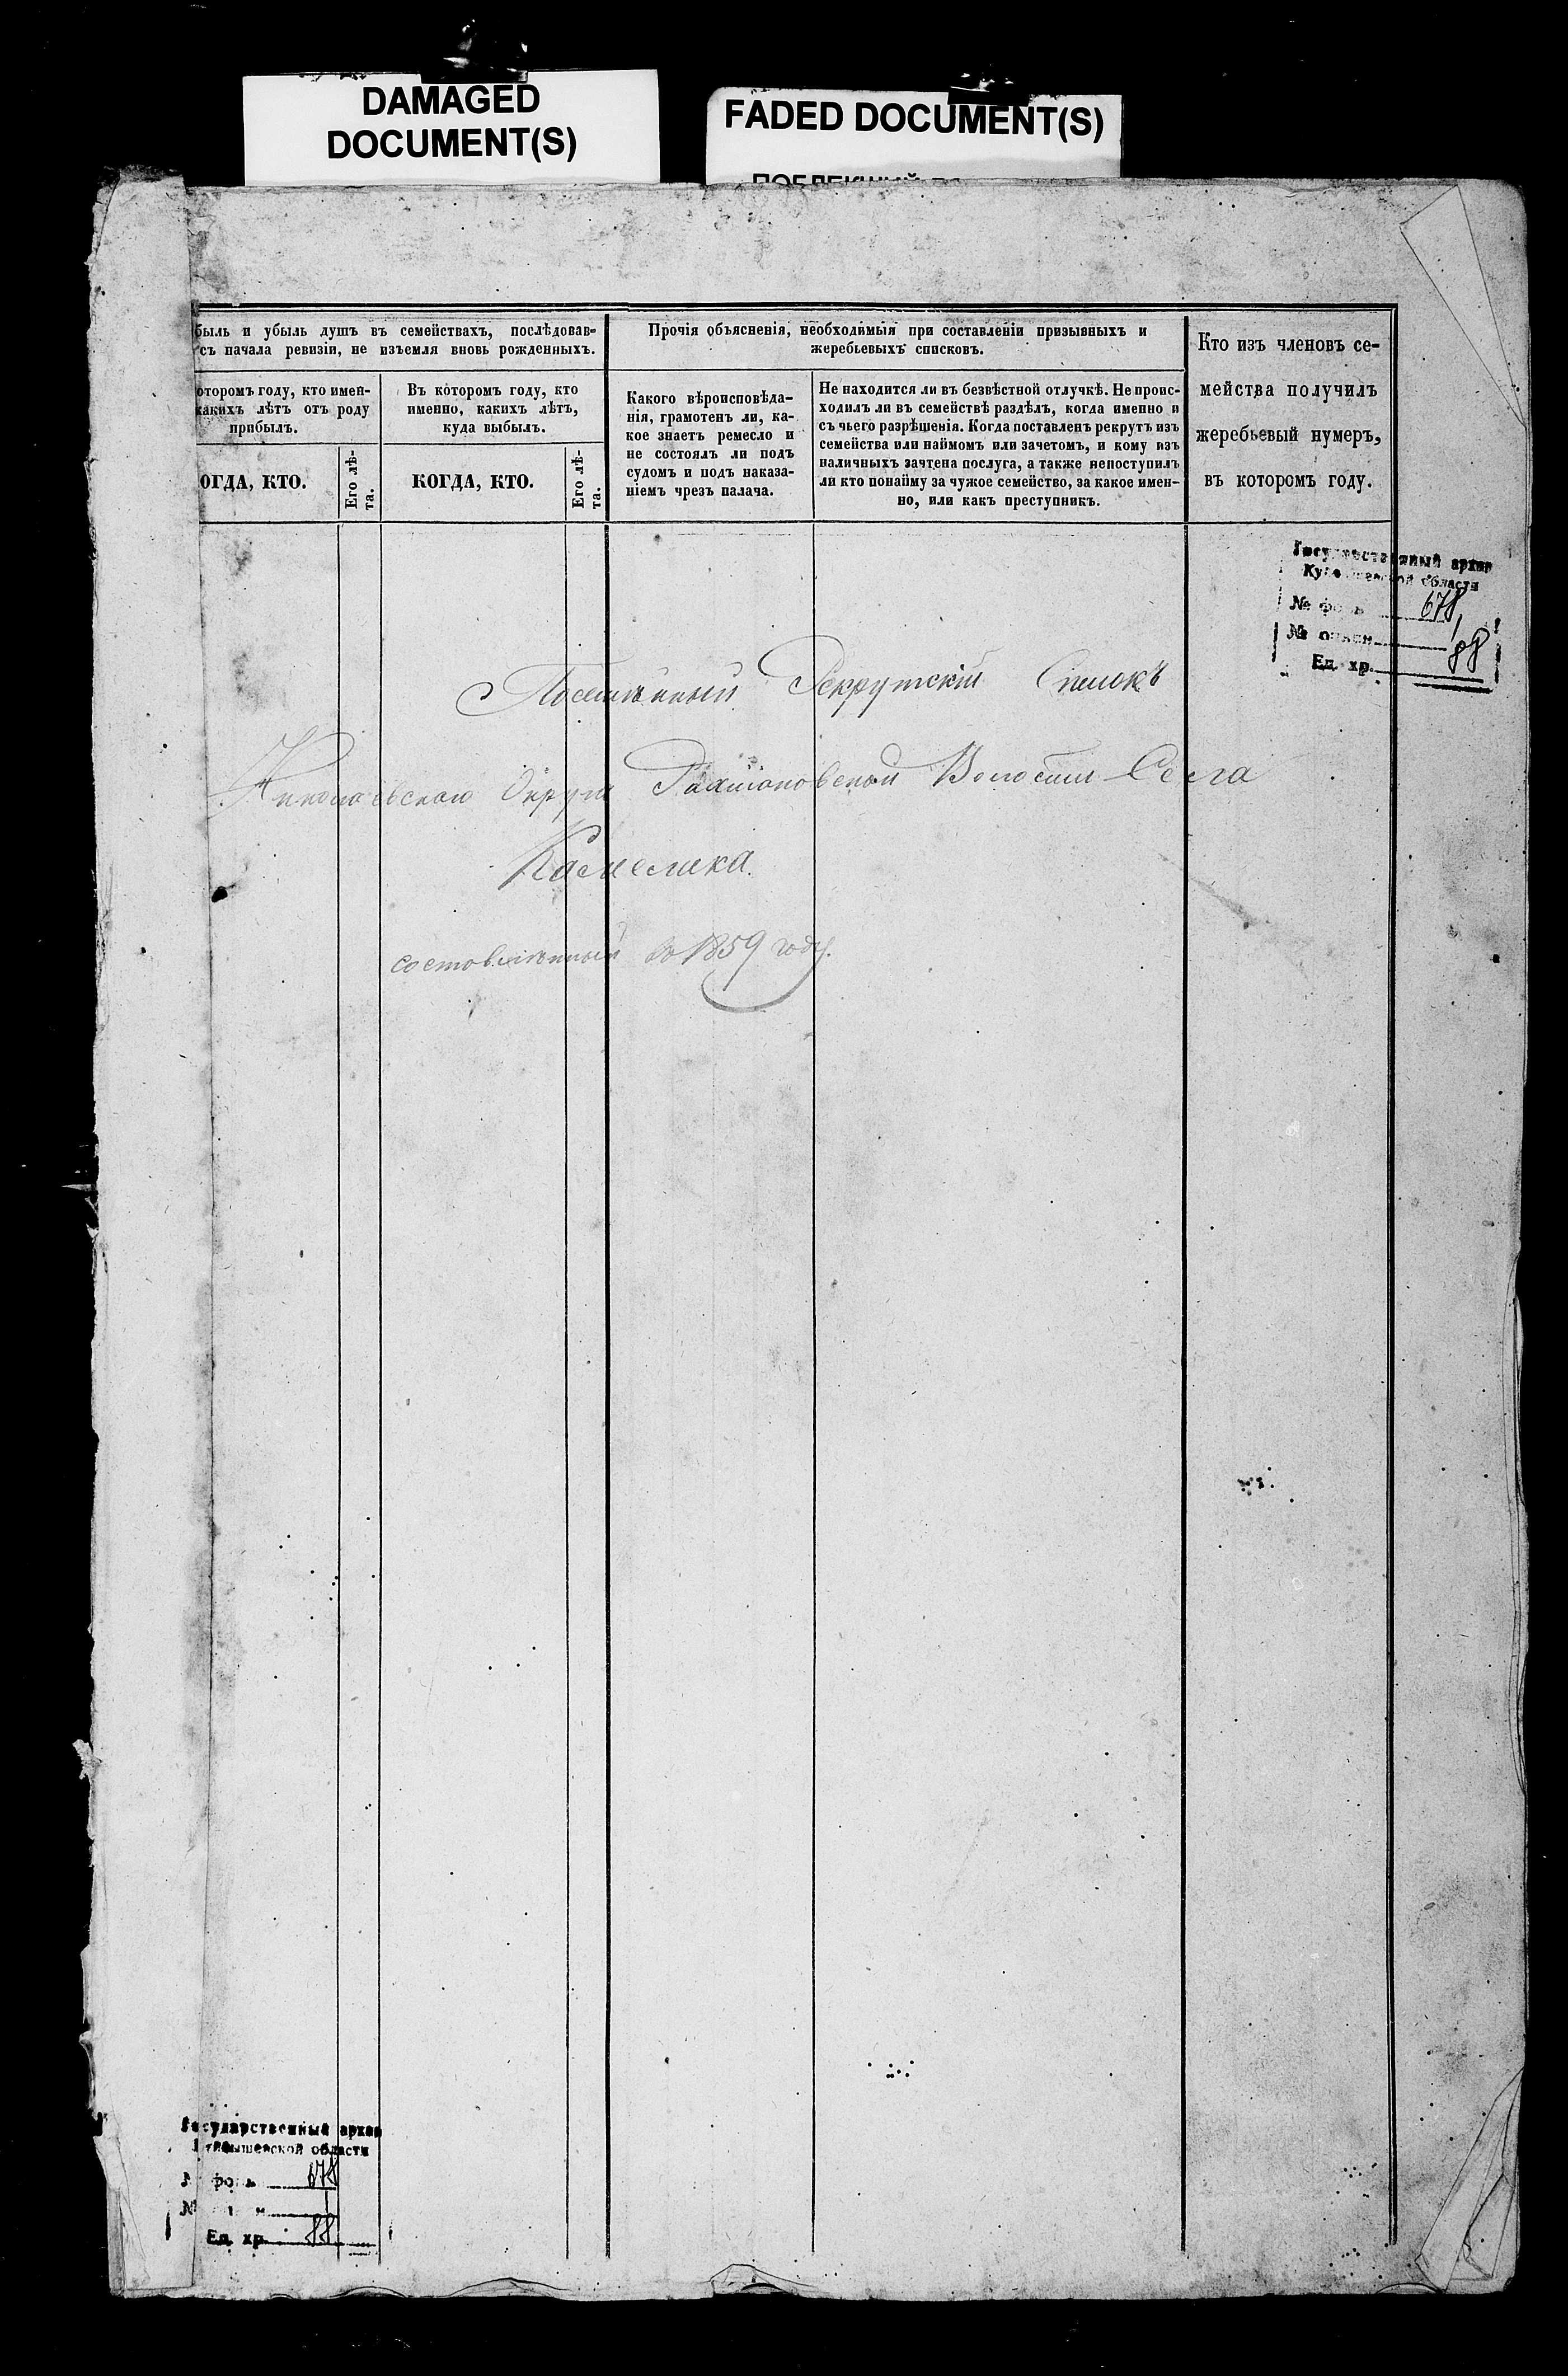 DAMAGED
DOCUMENT(S)
FADED DOCUMENT(S)
быль и убыль душъ въ семействахъ, послѣдовав-
съ начала ревизіи, не изъемля вновь рожденныхъ.
отромъ году, кто имен-
какихъ лѣтъ отъ роду
прибылъ.
ОГДА, КТО.
Его лѣ-
та.
Въ которомъ году, кто
именно, какихъ лѣтъ,
куда выбылъ.
КОГДА, КТО.
Его лѣ-
та.
Прочія объясненія, необходимыя при составленіи призывныхъ и
жеребьевыхъ списковъ.
Какого вѣроисповѣда-
нія, грамотенъ ли, ка-
кое знаетъ ремесло и
не состоялъ ли подъ
судомъ и подъ наказа-
ніемъ чрезъ палача.
Не находится ли въ безвѣстной отлучкѣ. Не проис-
ходилъ ли въ семействѣ раздѣлъ, когда именно и
съ чьего разрѣшенія. Когда поставленъ рекрутъ изъ
семейства или наймомъ или зачетомъ, и кому изъ
наличныхъ зачтена послуга, а также непоступилъ
ли кто понайму за чужое семейство, за какое имен-
но, или какъ преступникъ.
Кто изъ членовъ се-
мейства получилъ
жеребьевый нумеръ,
въ которомъ году.
Государственный архив
Куйбышевской области
№ фонда 678
№ описи 1
Ед. хр. 88
Посемейный Рекрутскій Списокъ
Николаевскаго Округа Волости Села
Камелика
составленный въ 1859 году.
Государственный архив
Куйбышевской области
№ фонда 678
№ описи 1
Ед. хр. 88